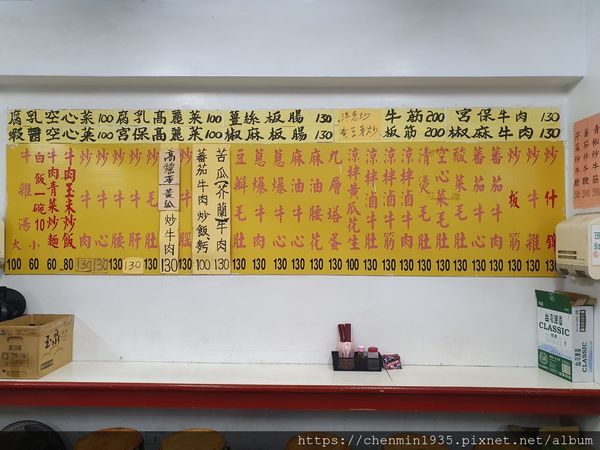 腐乳空心菜100 腐乳高麗菜100 薑絲板腸130
牛筋200 宮保牛肉130
蝦醬空心菜100 宮保高麗菜100 椒麻板腸130
黃豆芽炒
板筋200 椒麻牛肉130
牛雜湯 大100 小60
白飯一碗10
牛肉青菜炒麵60
牛肉玉米炒飯80
炒牛肉130
炒牛心130
炒牛腰130
炒牛肝130
炒毛肚130
炒牛肉130
蕃茄牛肉炒飯 100
苦瓜(芥蘭)牛肉130
豆瓣毛肚130
蔥爆牛肉130
蔥爆牛心130
麻油牛腰130
麻油腰花130
九層塔蛋100
涼拌黃瓜花生100
涼拌滷牛肚130
涼拌滷牛肉130
涼拌滷牛筋130
清燙毛肚130
空心菜毛肚130
酸菜毛肚130
蕃茄牛肉130
蕃茄牛肚130
炒板筋130
炒牛雜130
炒什錦130
台灣啤酒
CLASSIC
CLASSIC
https://chenmin1935.pixnet.net/album